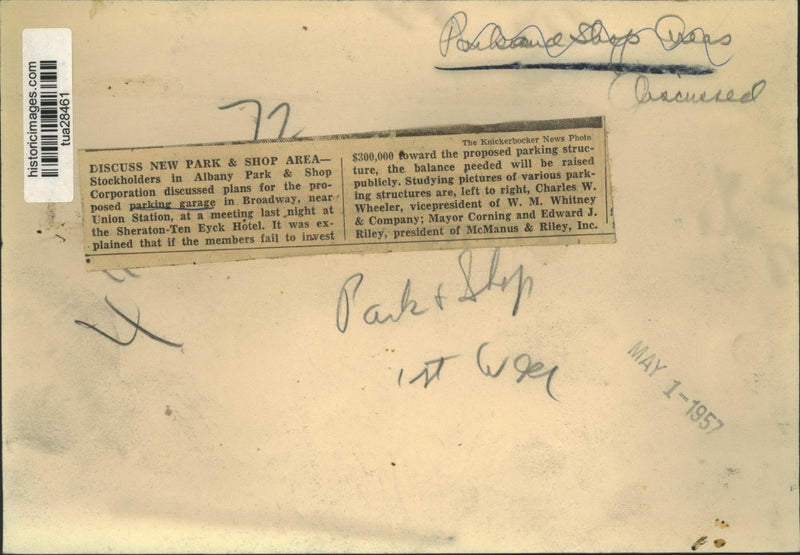 historicimages.com
tua28461
Park and Shop Area
Discussed
72
DISCUSS NEW PARK & SHOP AREA—
Stockholders in Albany Park & Shop
Corporation discussed plans for the pro-
posed parking garage in Broadway, near
Union Station, at a meeting last night at
the Sheraton-Ten Eyck Hotel. It was ex-
plained that if the members fail to invest
The Knickerbocker News Photo
$300,000 toward the proposed parking struc-
ture, the balance needed will be raised
publicly. Studying pictures of various park-
ing structures are, left to right, Charles W.
Wheeler, vicepresident of W. M. Whitney
& Company; Mayor Corning and Edward J.
Riley, president of McManus & Riley, Inc.
Park & Shop
1st
MAY 1-1957